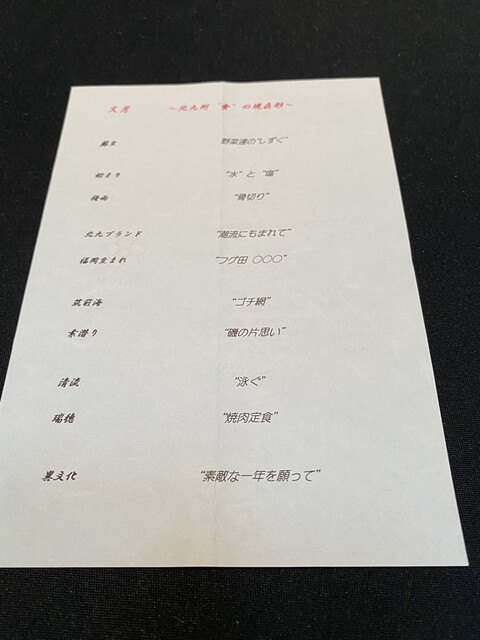 文月 ～北九州 "食" の現在形～
蘇生 "野菜達の"しずく"
始まり "水" と "塩"
椀 "骨切り"
北九ブランド "潮流にもまれて"
福岡生まれ "フグ田 〇〇〇"
筑前海 "ゴチ網"
素潜り "磯の片思い"
清流 "泳ぐ"
瑞穂 "焼肉定食"
異文化 "素敵な一年を願って"